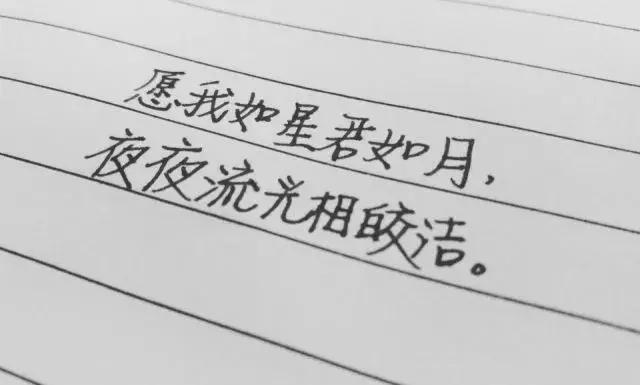 愿我如星君如月,
夜夜流光相皎洁。